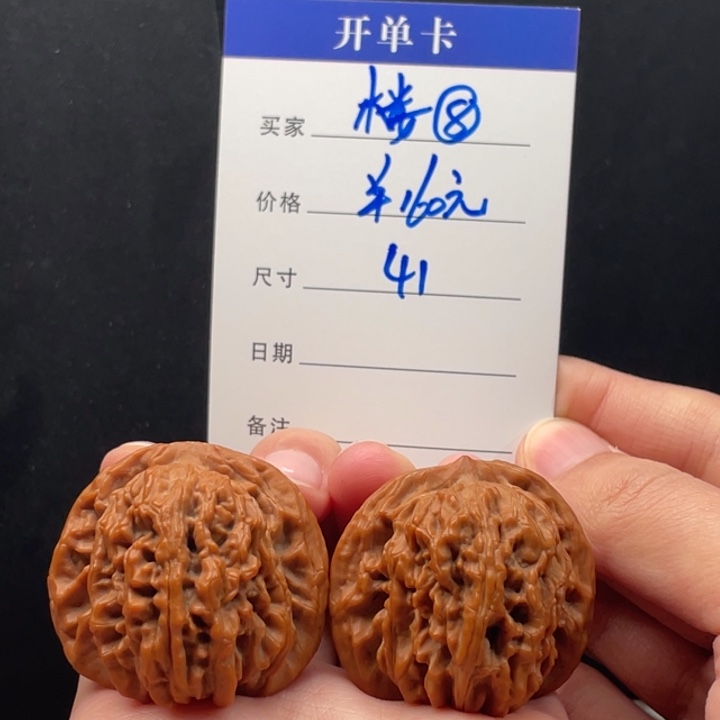 开单卡
买家 楼⑧
价格 ¥160元
尺寸 41
日期
备注